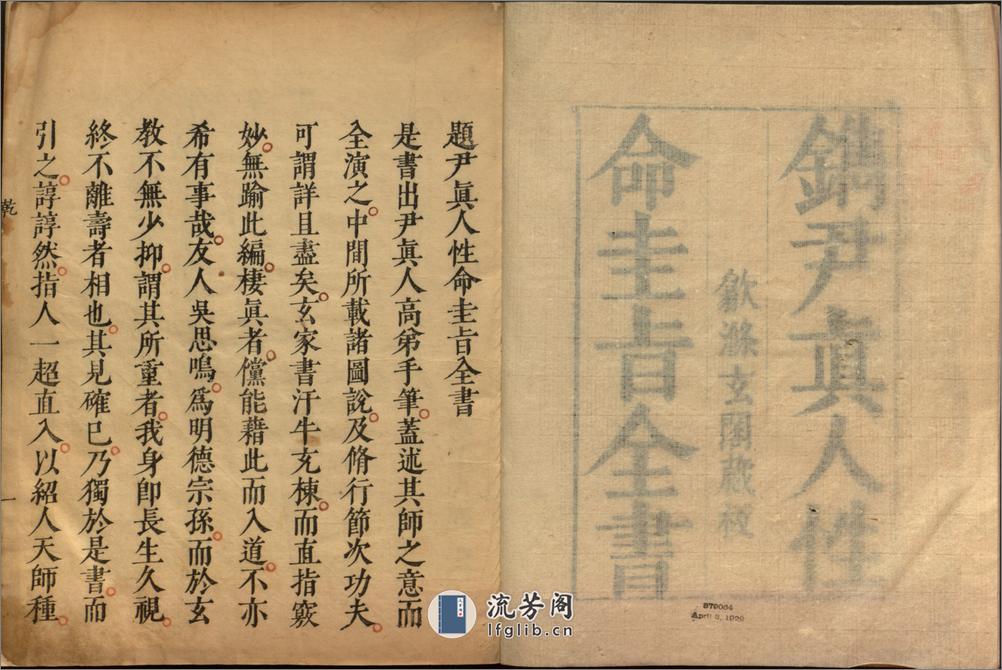 鐫尹眞人性
命圭旨全書
歙滌玄閣蔵板
879004
April 8, 1926
題尹眞人性命圭旨全書
是書出尹眞人高弟手筆。蓋述其師之意而
全演之。中間所載諸圖說。及脩行節次功夫。
可謂詳且盡矣。玄家書汗牛充棟。而直指竅
妙。無踰此編。棲眞者。儻能藉此而入道。不亦
希有事哉。友人吳思鳴。爲明德宗孫。而於玄
教不無少抑。謂其所重者。我身卽長生久視。
終不離壽者相也。其見確已。乃獨於是書。而
引之。諄諄然。指人一超直入。以紹人天師種。
乾
一
流芳阁
lfglib.cn